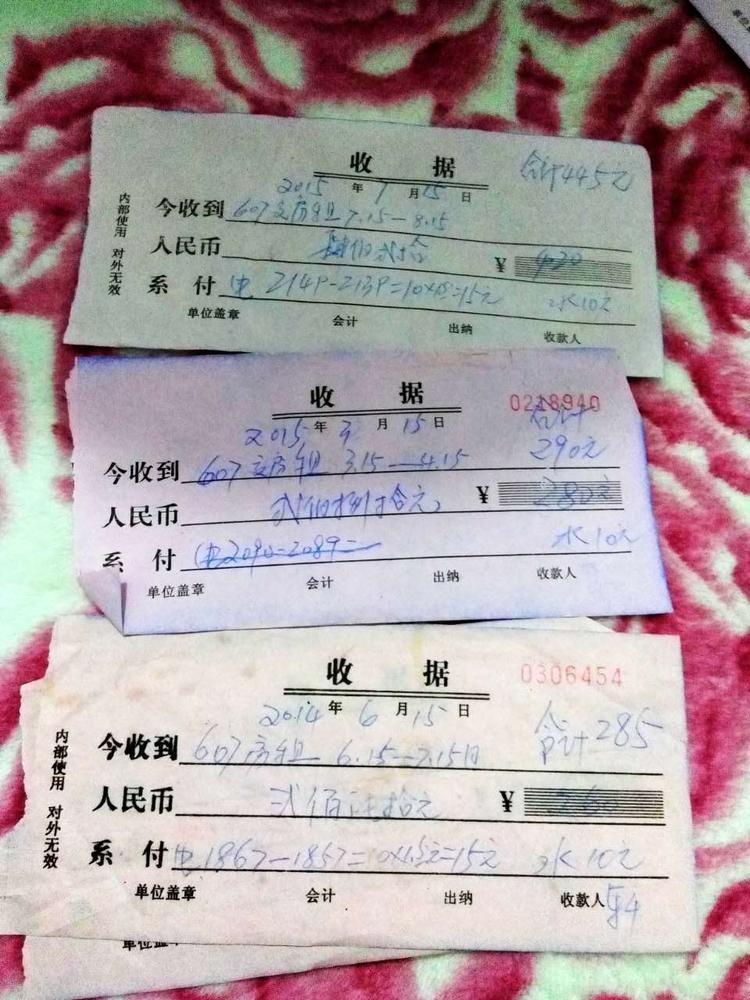 收 据 合计445元
2015 年 7 月 15 日
今收到 607交房租 7.15—8.15
人民币 肆佰贰拾 ¥ 420
系 付 电 2149-2139=10×1.5=15元 水10元
单位盖章 会计 出纳 收款人
内部使用 对外无效
收 据 0218940
2015 年 3 月 15 日 合计
今收到 607交房租 3.15—4.15 290元
人民币 贰佰捌拾元 ¥ 280元
系 付 电2090-2089= 水10元
单位盖章 会计 出纳 收款人
收 据 0306454
2014 年 6 月 15 日 合计285
今收到 607房租 6.15—7.15日
人民币 贰佰陆拾元 ¥ 260
系 付 电1867-1857=10×1.5元=15元 水10元
单位盖章 会计 出纳 收款人
内部使用 对外无效
单位盖